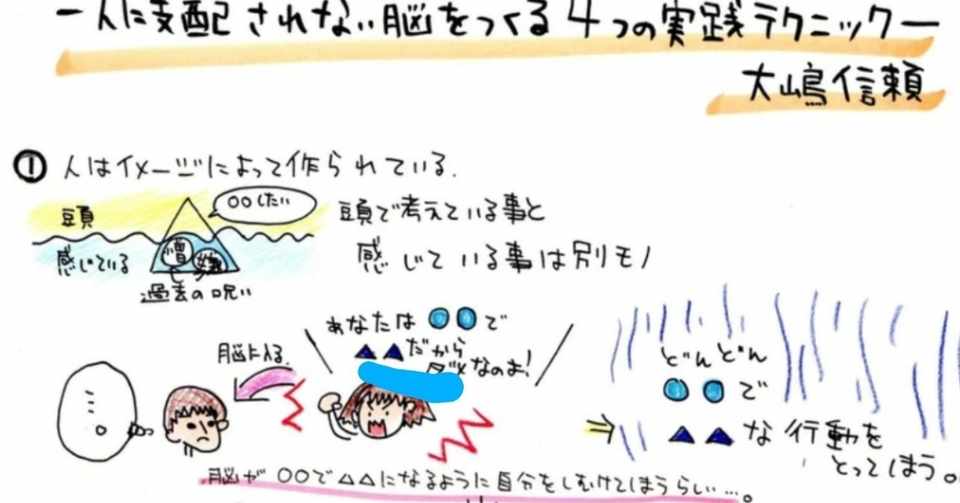 一人に支配されない脳をつくる4つの実践テクニック一
大嶋信頼
① 人はイメージによって作られている.
〇〇したい
豆頁
感じている
憎
嫌
過去の呪い
豆頁で考えている事と
感じている事は別モノ
あなたは●●で
▲▲だから
ダメなのよ!
脳に入る.
どんどん
●●で
⇒ ▲▲な行動を
とってしまう。
脳が〇〇で△△になるように自分をしむけてしまうらしい…。